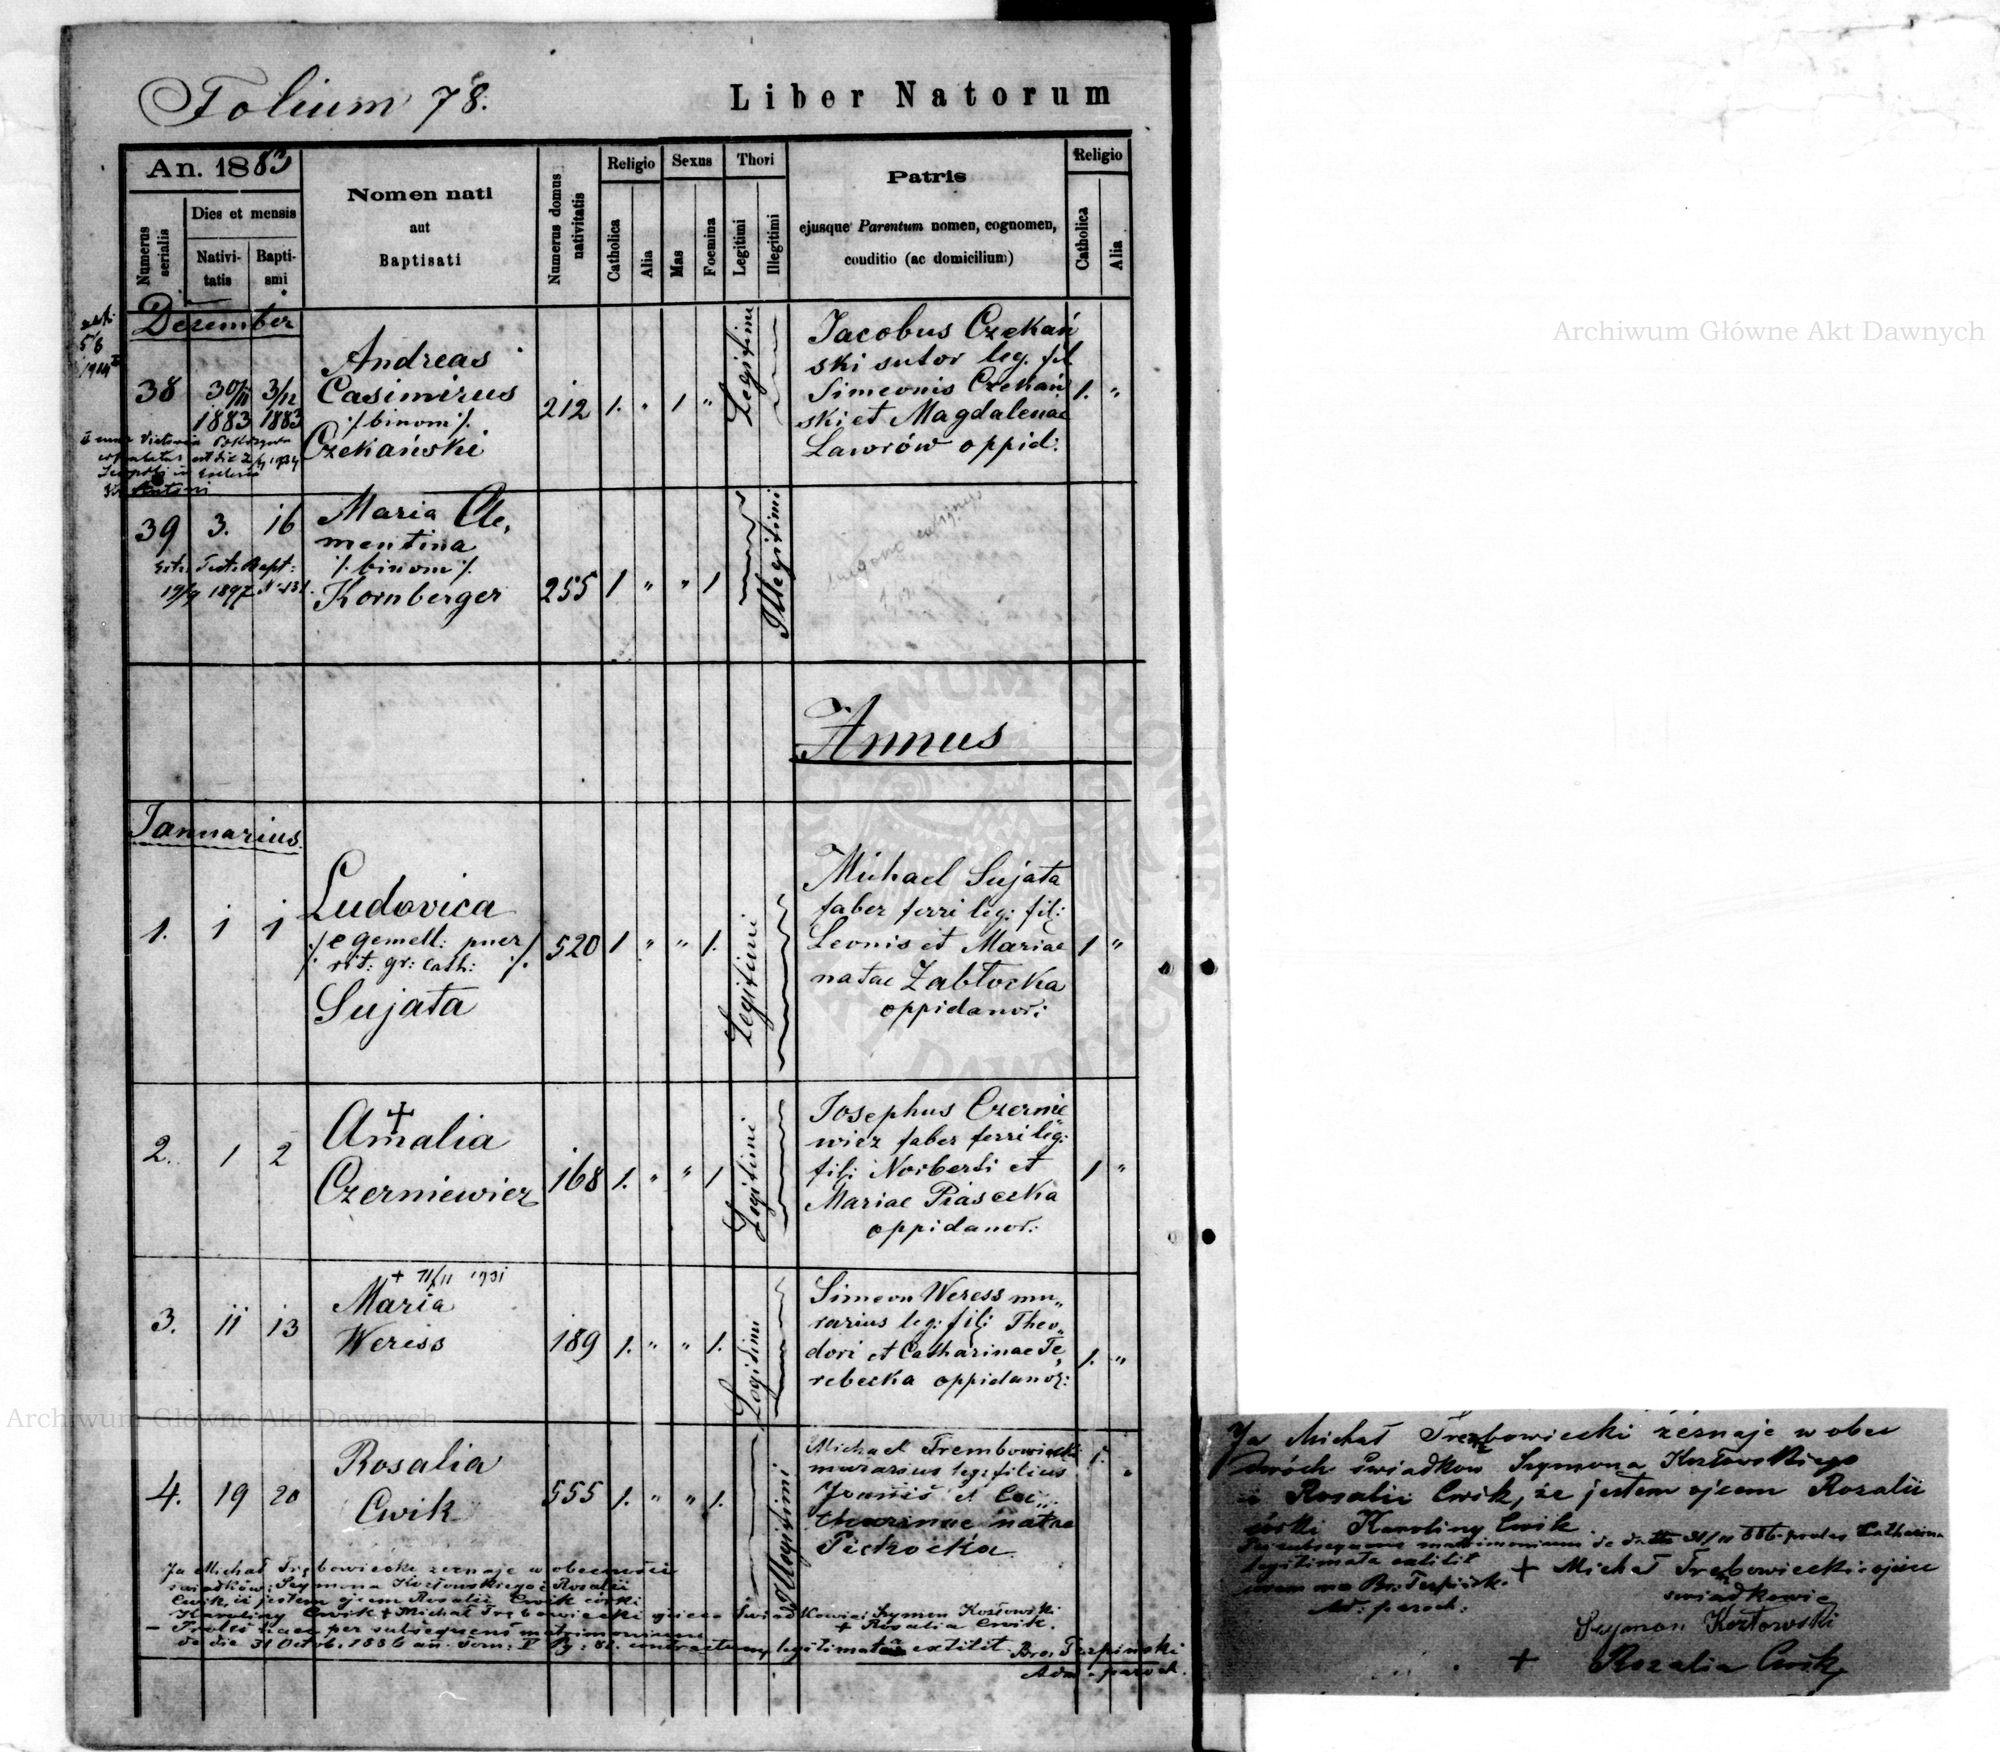 Folium 78.
Liber Natorum
An. 1883
Numerus serialis
Dies et mensis
Nativitatis
Baptismi
Nomen nati
aut
Baptisati
Numerus domus nativitatis
Religio
Catholica
Alia
Sexus
Mas
Foemina
Thori
Legitimi
Illegitimi
Patris
ejusque Parentum nomen, cognomen,
conditio (ac domicilium)
Religio
Catholica
Alia
Dezember
38
30/11
1883
3/12
1883
Andreas
Casimirus
/. binom /.
Czekański
212
1. " 1 "
Legitimi
Jacobus Czekań
ski sutor leg. fil.
Simeonis Czekań
ski et Magdalenae
Lawrów oppid:
1. "
39 3. 16
Maria Cle,
mentina
/. binom /.
Kornberger
19/9 1897
255
1 " " 1
Illegitimi
Annus
Januarius.
1. 1 1
Ludovica
/. e gemell: puer /.
/. rit: gr: cath: /.
Sujata
520
1 " " 1.
Legitimi
Michael Sujata
faber ferri leg: fil:
Leonis et Mariae
natae Zabłocka
oppidanor:
1 "
2. 1 2
+
Amalia
Czerniewicz
168
1. " " 1
Legitimi
Josephus Czernie
wicz faber ferri leg:
fil: Norberti et
Mariae Piasecka
oppidanor:
1 "
3. 11 13
+ 11/11 1931
Maria
Weress
189
1. " " 1.
Legitimi
Simeon Weress mu,,
rarius leg: fil: Theo,,
dori et Catharinae Te,,
rebecka oppidanor:
1. "
4. 19 20
Rosalia
Cwik
555
1. " " 1.
Illegitimi
Michael Trembowiecki
murarius leg: filius
Joannis et Ca,,
tharinae natae
1.
Ja Michał Trębowiecki zeznaje w obecności
świadków: Szymona Kozłowskiego i Rosalii
Cwik, iż jestem ojcem Rosalii Cwik córki
Karoliny Cwik + Michał Trębowiecki ojciec Świadkowie: Szymon Kozłowski
+ Rosalia Cwik.
- Proles haec per subsequens matrimonium
de die 31 Octob. 1886 contractum legitimata extitit
Ja Michał Trembowiecki zeznaje w obec
dwóch świadkow Szymona Kozłowskiego
i Rozalii Cwik, że jestem ojcem Rozalii
córki Karoliny Cwik.
legitimata extitit
+ Michał Trębowiecki ojciec
Ad: paroch:
świadkowie
Szymon Kozłowski
+ Rozalia Cwik
Archiwum Główne Akt Dawnych
Archiwum Główne Akt Dawnych